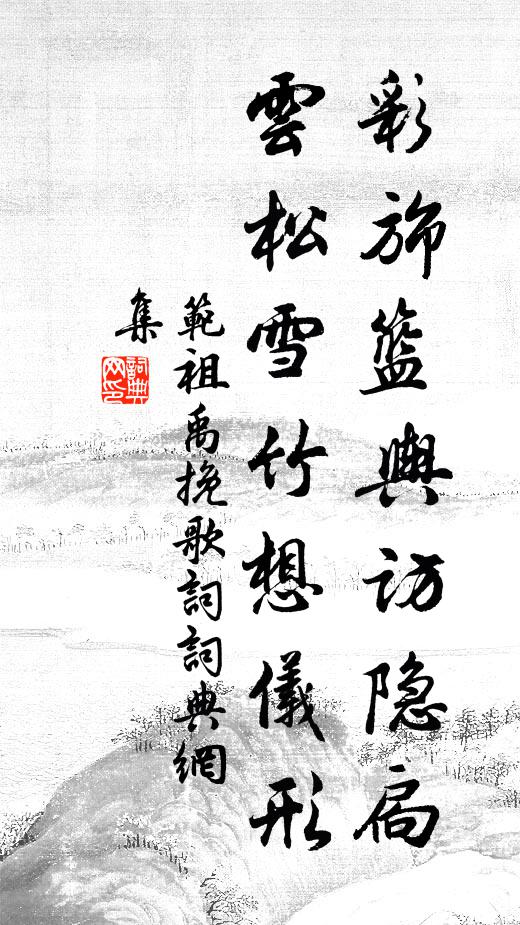 彩旆籃輿訪隐扃
雲松雪竹想儀形
範祖禹挽歌詞詞典網
集
詞典网印